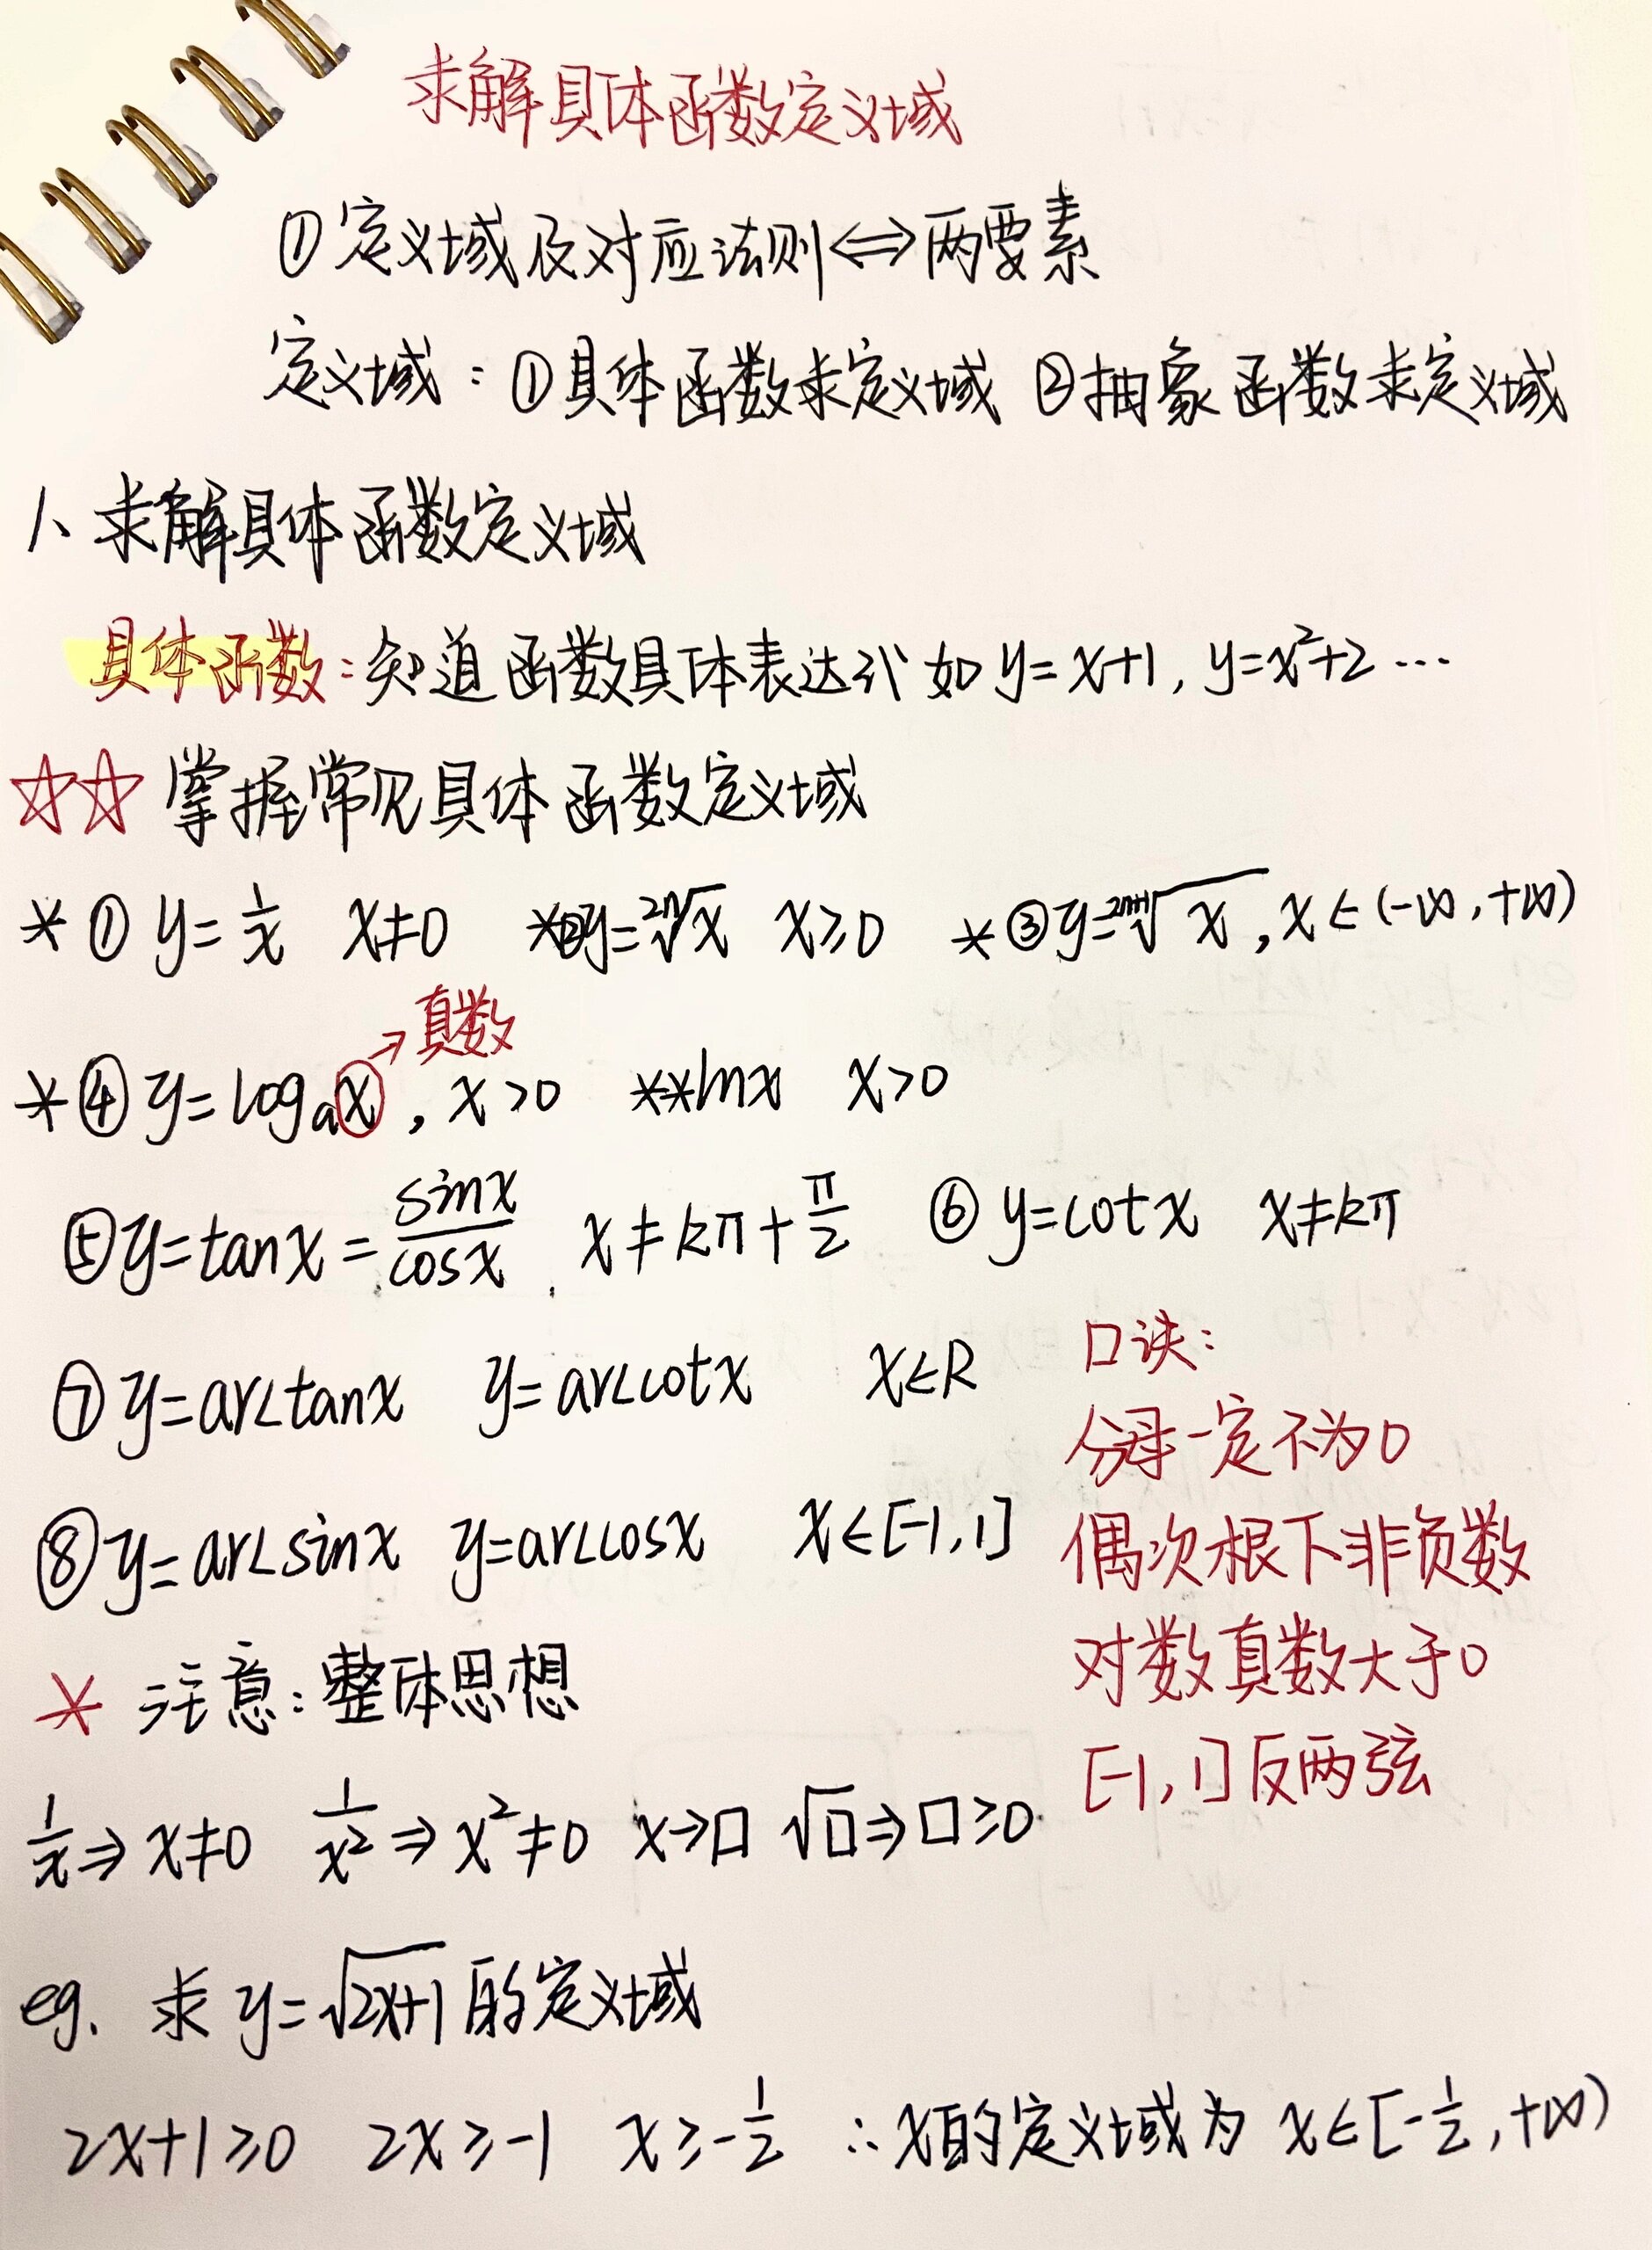 求解具体函数定义域
①定义域及对应法则⇔两要素
定义域：①具体函数求定义域 ②抽象函数求定义域
1、求解具体函数定义域
具体函数：知道函数具体表达式 如 y=x+1, y=x²+2 …
☆☆ 掌握常见具体函数定义域
* ① y=1/x x≠0 *②y=²ⁿ√x x≥0 *③y=²ⁿ⁺¹√x, x∈(-∞,+∞)
→真数
*④ y=logₐx, x>0 **lnx x>0
⑤y=tanx=sinx/cosx x≠kπ+π/2 ⑥ y=cotx x≠kπ
⑦ y=arctanx y=arccotx x∈R
⑧ y=arcsinx y=arccosx x∈[-1,1]
口诀：
分母一定不为0
偶次根下非负数
对数真数大于0
[-1,1]反两弦
* 注意：整体思想
1/x⇒x≠0 1/x²⇒x²≠0 x→□ √□⇒□≥0
eg. 求 y=√2x+1 的定义域
2x+1≥0 2x≥-1 x≥-1/2 ∴x的定义域为 x∈[-1/2,+∞)